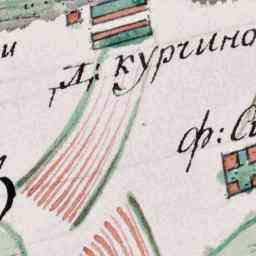 и
Д: курчино
ф: